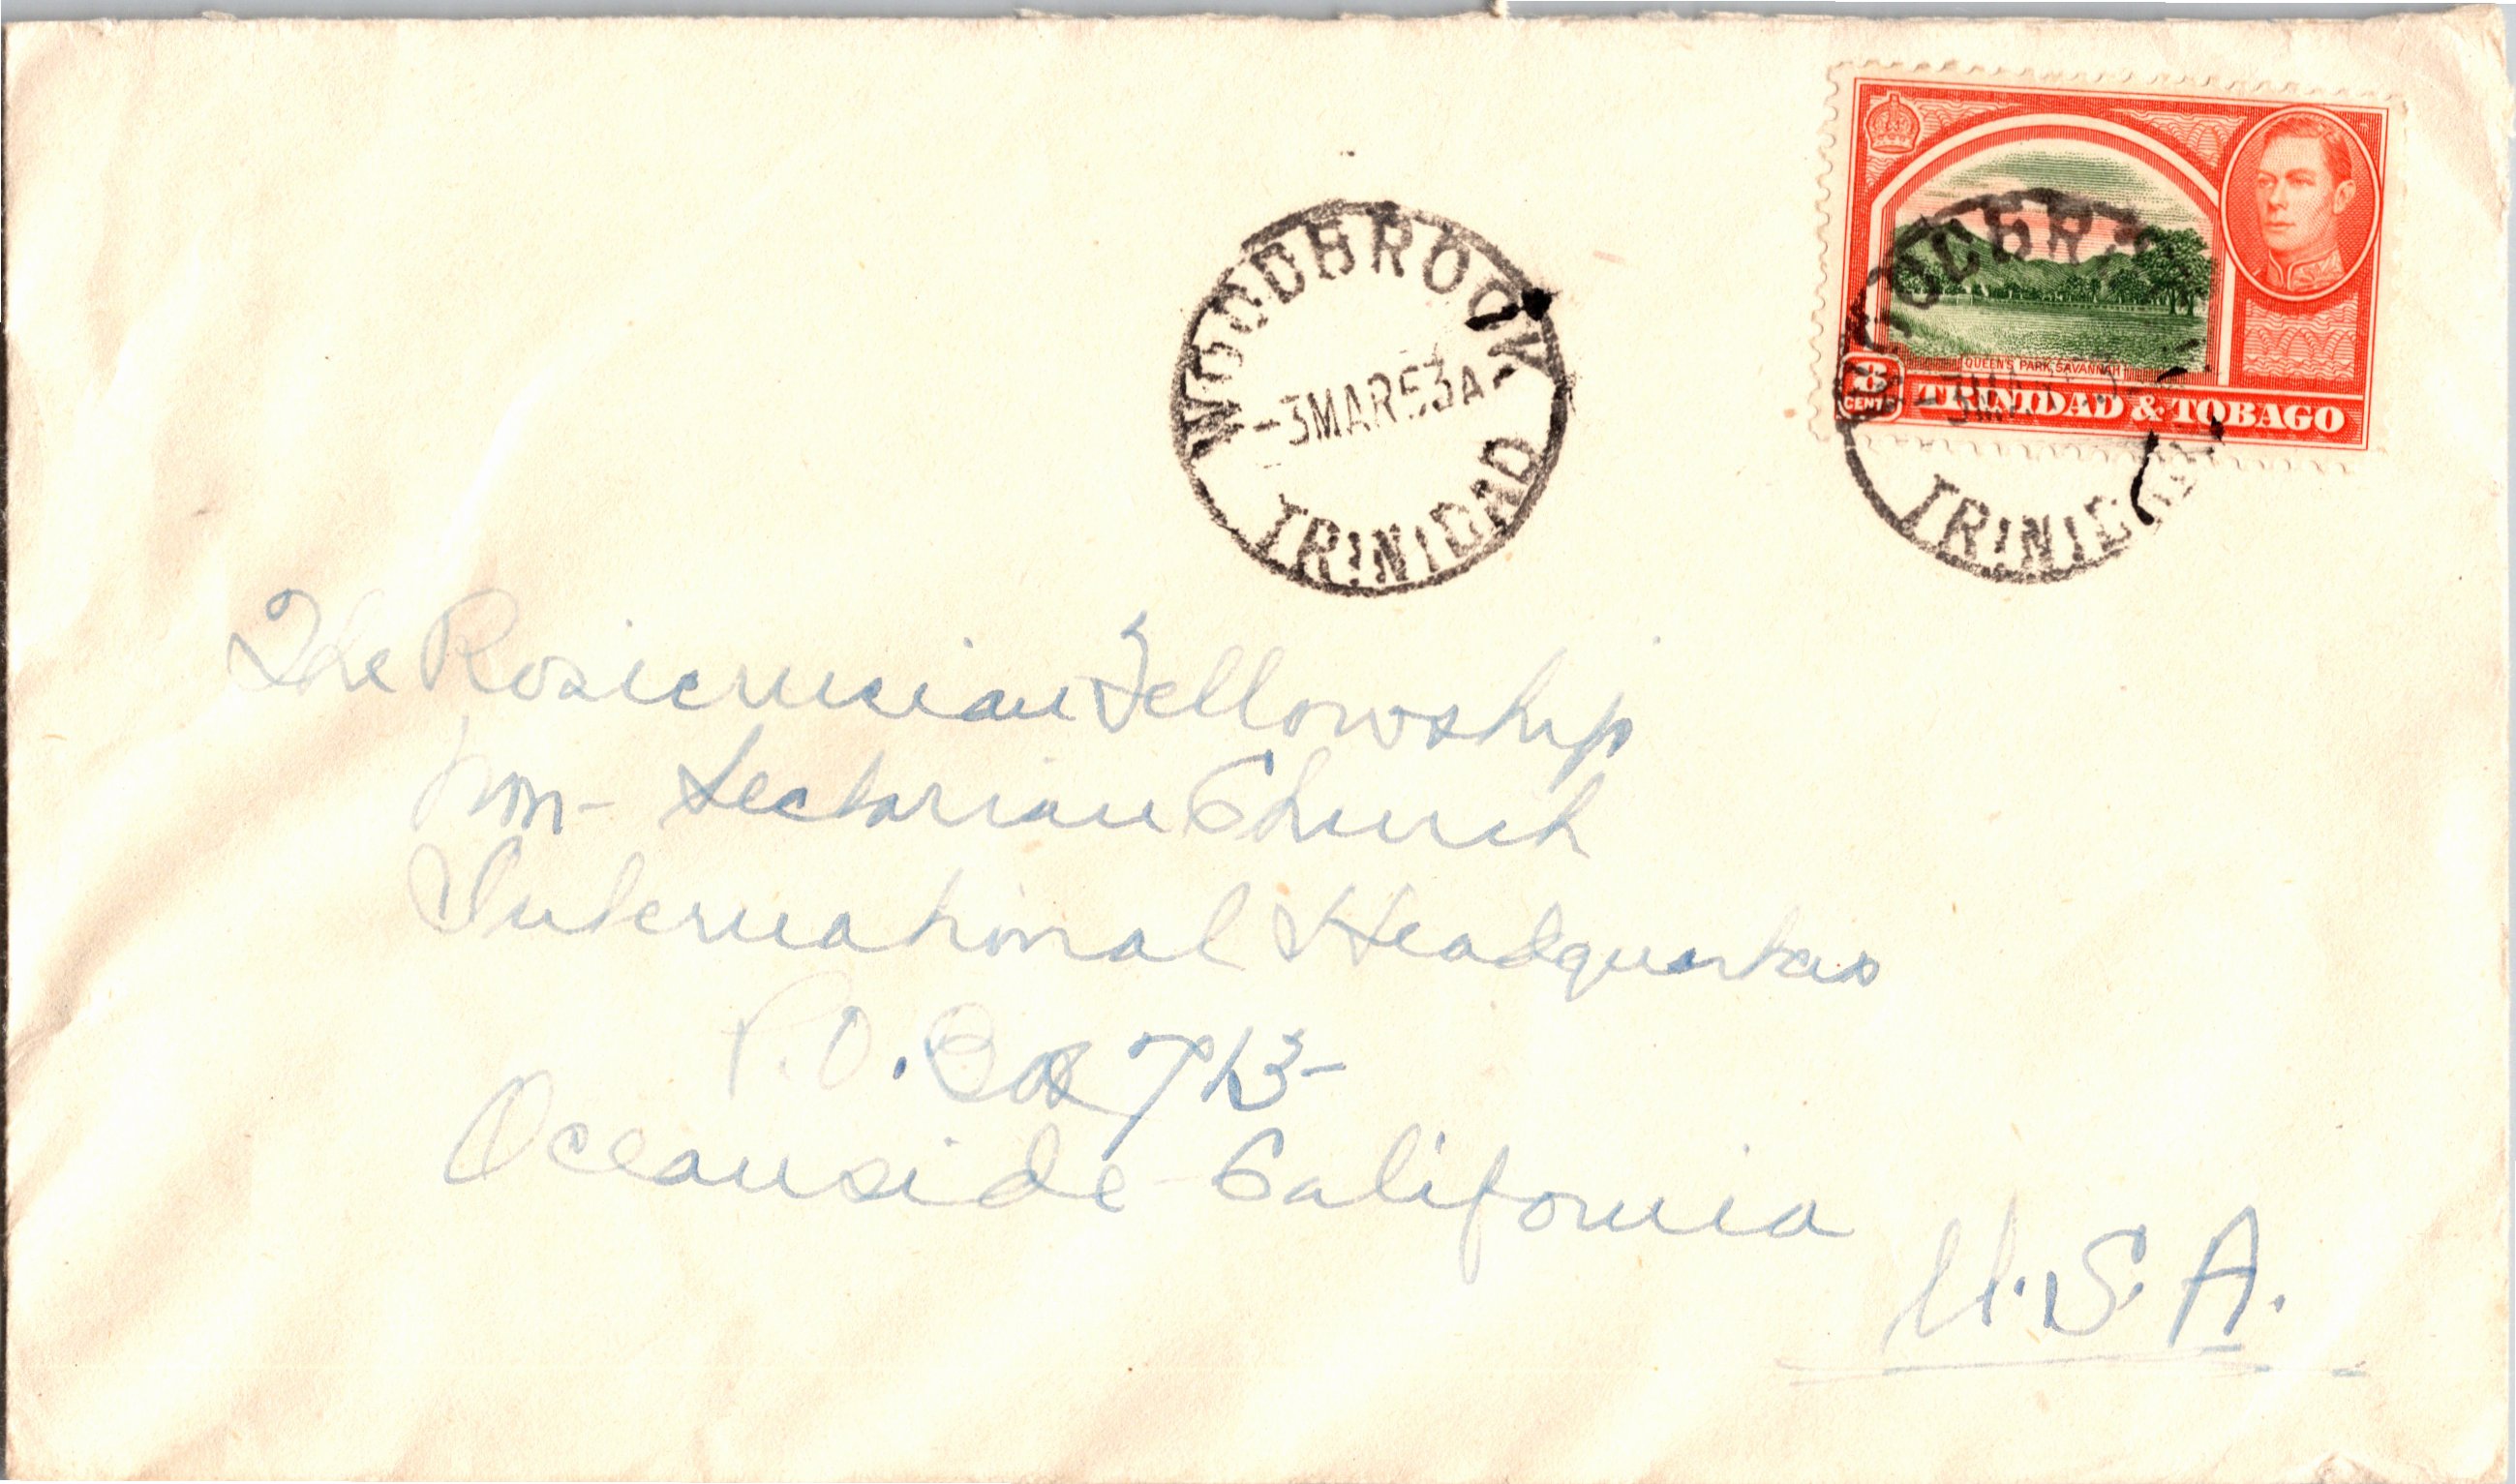 WOODBROOK
-3MAR53A-
TRINIDAD
QUEEN'S PARK, SAVANNAH
8
CENTS
TRINIDAD & TOBAGO
TRINIDAD
The Rosicrucian Fellowship
Non-Sectarian Church
International Headquarters
P.O. Box 713-
Oceanside California
U.S.A.